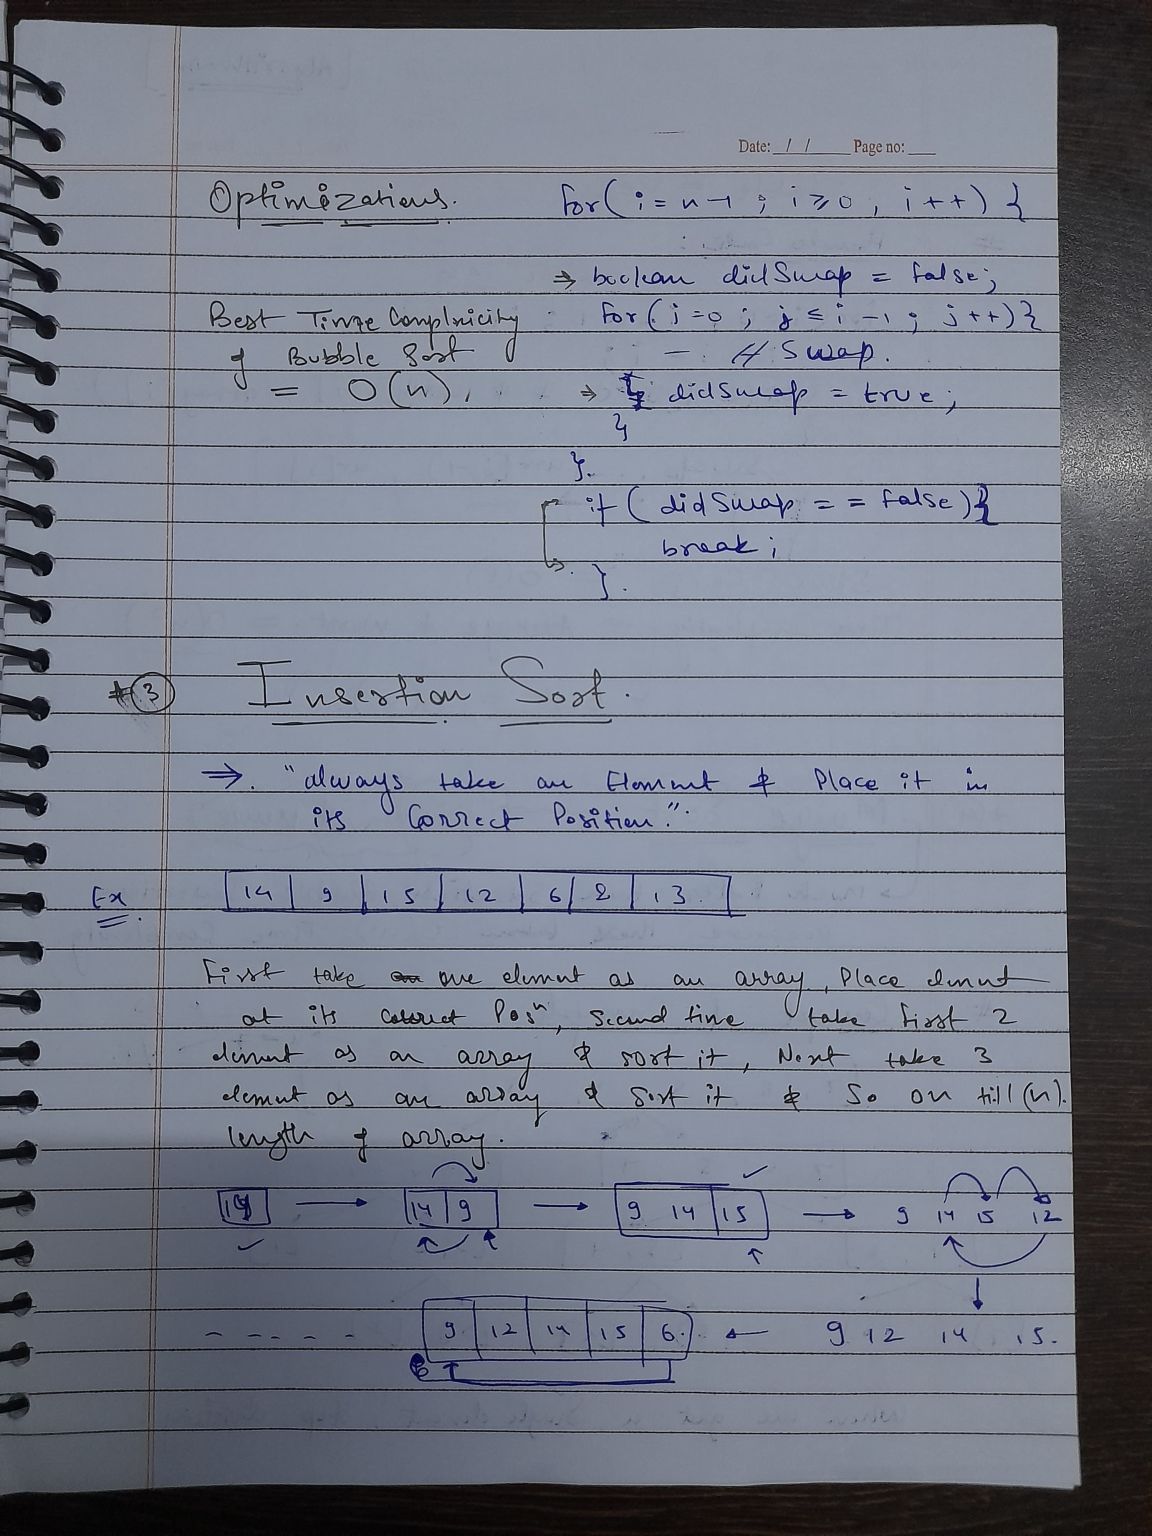 Date: / / Page no:
Optimizations. for( i = n-1 ; i ≥ 0 , i++) {
⇒ boolean didSwap = false;
Best Time Complnicity for( j=0 ; j ≤ i -1 ; j++){
of Bubble Sort - // Swap.
= O(n). ⇒ didSwap = true;
}
}.
if ( didSwap = = false){
break;
}.
#3 Insertion Sort.
⇒. "always take an Element & Place it in
its Correct Position."
Ex 14 9 15 12 6 2 13
First take one element as an array, Place elment
at its correct Posn, Second time take first 2
elment as an array & sort it, Next take 3
elemnt as an array & Sort it & So on till (n).
length of array.
14 → 14 9 → 9 14 15 → 9 14 15 12
- - - - - 9 12 14 15 6 ← 9 12 14 15.
6